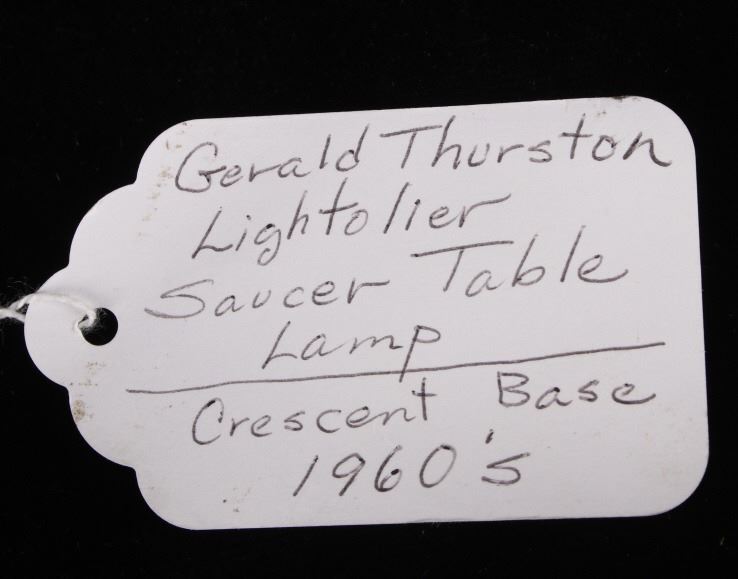 Gerald Thurston
Lightolier
Saucer Table
Lamp
Crescent Base
1960's